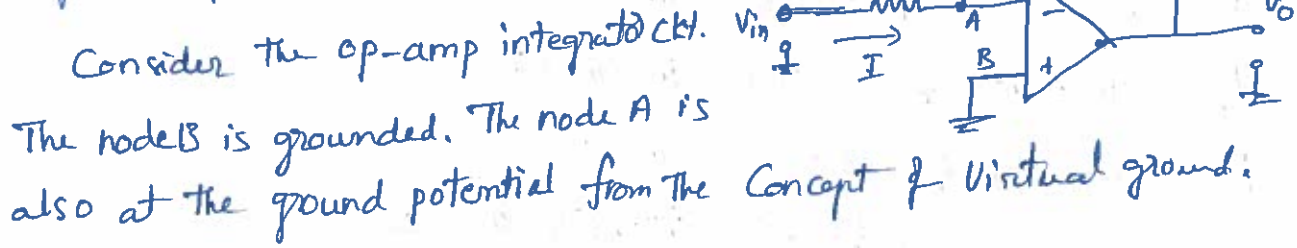 Consider the op-amp integrator ckt.
Vin
I
A
B
−
+
Vo
The node B is grounded. The node A is
also at the ground potential from The Concept of Virtual ground.